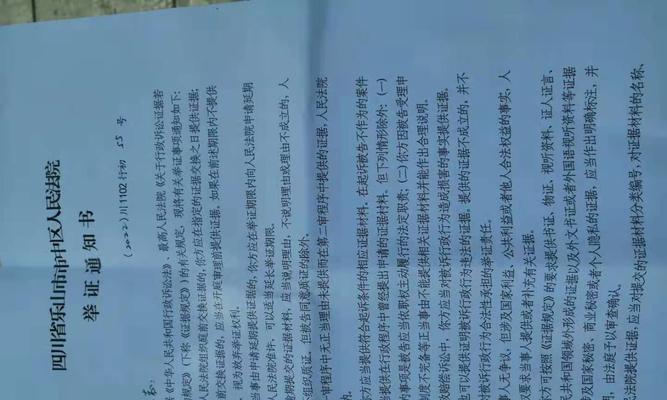 四川省乐山市市中区人民法院
举证通知书
(2022)川1102行初 55 号
《中华人民共和国行政诉讼法》、最高人民法院《关于行政诉讼证据若
》(下称《证据规定》)的有关规定，现将有关举证事项通知如下：
人民法院组织庭前交换证据的，你方应在指定的证据交换之日提供证据；
前交换证据的，应当在开庭审理前提供证据，如果在前述期限内不提供
，视为放弃举证权利。
当事由申请延期提供证据的，你方应在举证期限内向人民法院申请延期
人民法院准许，可以适当延长举证期限。
逾期提交的证据材料，应当说明理由，不说明理由或理由不成立的，人
不组织质证。但被告同意质证的除外。
审程序中无正当理由未提供而在第二审程序中提供的证据，人民法院
方应当提供符合起诉条件的相应证据材料。在起诉被告不作为的案件
当提供在行政程序中曾经提出申请的证据材料。但下列情形除外：(一)
的事项是被告应当依职权主动履行的法定职责；(二)你方因被告受理申
制度不完备等正当事由不能提供相关证据材料并能作出合理说明。
政赔偿诉讼中，你方应当对被诉行政行为造成损害的事实提供证据。
也可以提供证明被诉行政行为违法的证据，提供的证据不成立的，并不
对被诉行政行为合法性承担的举证责任。
事人无争议，但涉及国家利益、公共利益或者他人合法权益的事实，人
权要求当事人提供或者补充有关证据。
方可按照《证据规定》的要求提供书证、物证、视听资料、证人证言、
民共和国领域外形成的证据以及外文书证或者外国语视听资料等证据
涉及国家秘密、商业秘密或者个人隐私的证据，应当作出明确标注，并
明，由法庭予以审查确认。
民法院提供证据，应当对提交的证据材料分类编号，对证据材料的名称、